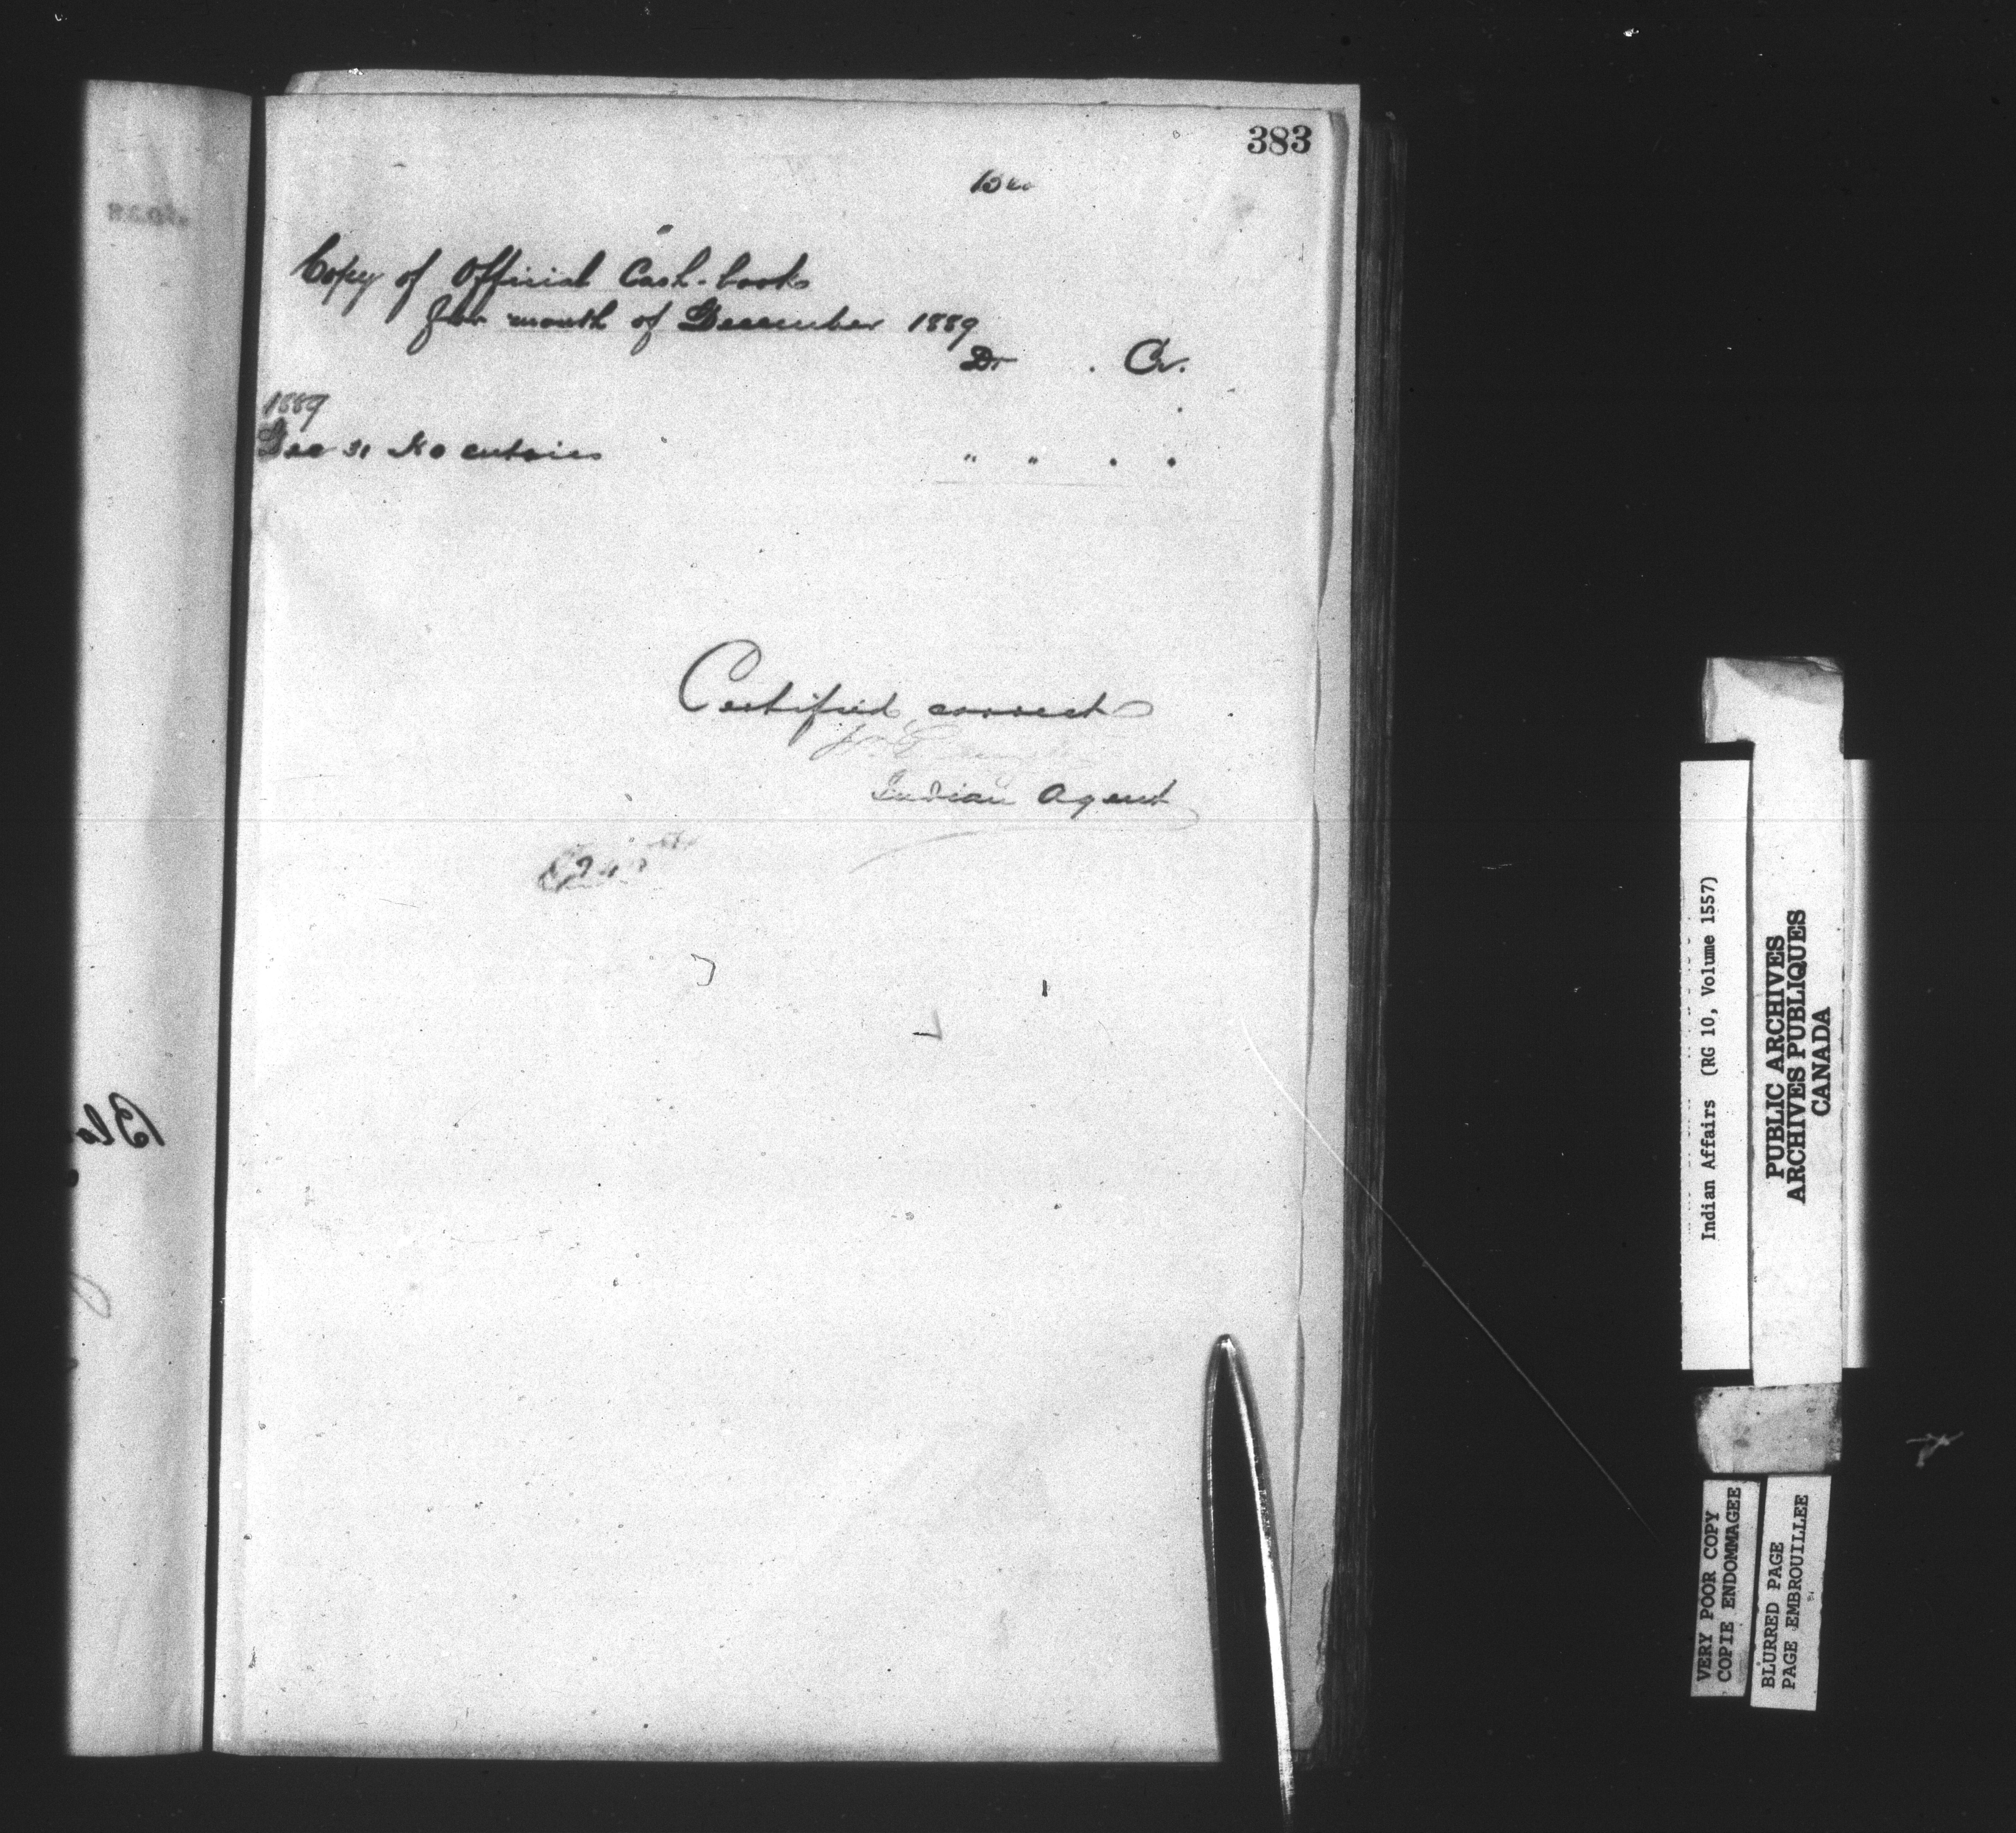 383
Copy of Official Cash-book
for month of December 1889
Dr Cr.
1889
Dec 31 No entries " "
Certified correct
Indian Agent
Indian Affairs (RG 10, Volume 1557)
PUBLIC ARCHIVES
ARCHIVES PUBLIQUES
CANADA
VERY POOR COPY
COPIE ENDOMMAGEE
BLURRED PAGE
PAGE EMBROUILLEE